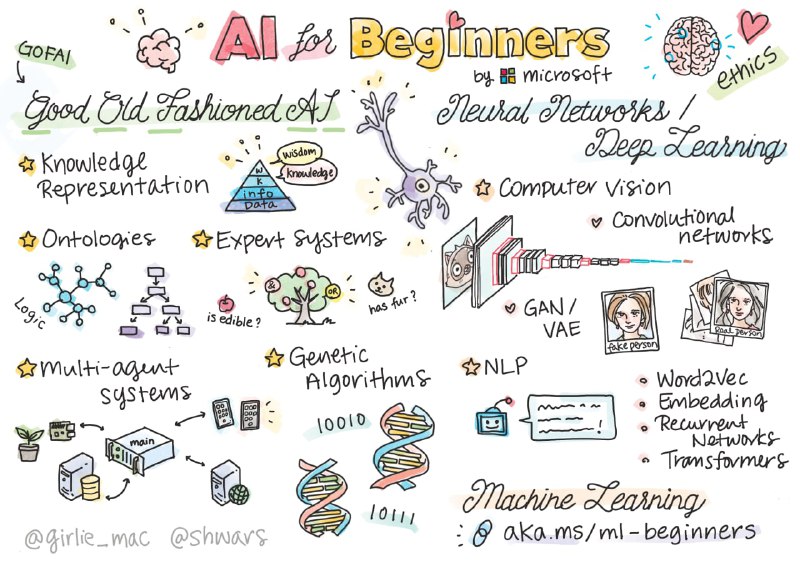 AI for Beginners
by Microsoft
GOFAI
ethics
Good Old Fashioned AI
Knowledge
Representation
wisdom
knowledge
W
K
info
Data
Ontologies
Logic
Expert Systems
&
OR
is edible?
has fur?
Multi-agent
systems
main
Genetic
Algorithms
10010
10111
Neural Networks /
Deep Learning
Computer Vision
Convolutional
networks
GAN/
VAE
fake person
Real person
NLP
Word2Vec
Embedding
Recurrent
Networks
Transformers
Machine Learning
aka.ms/ml-beginners
@girlie_mac @shwars